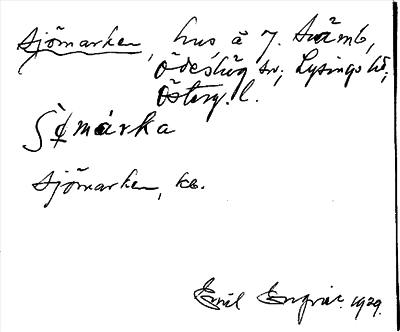 Sjömarken, hus å 7. Svämb,
Ödeshög sn; Lysings hd;
Österg. l.
márka
Sjömarken, kb.
Emil 1929.